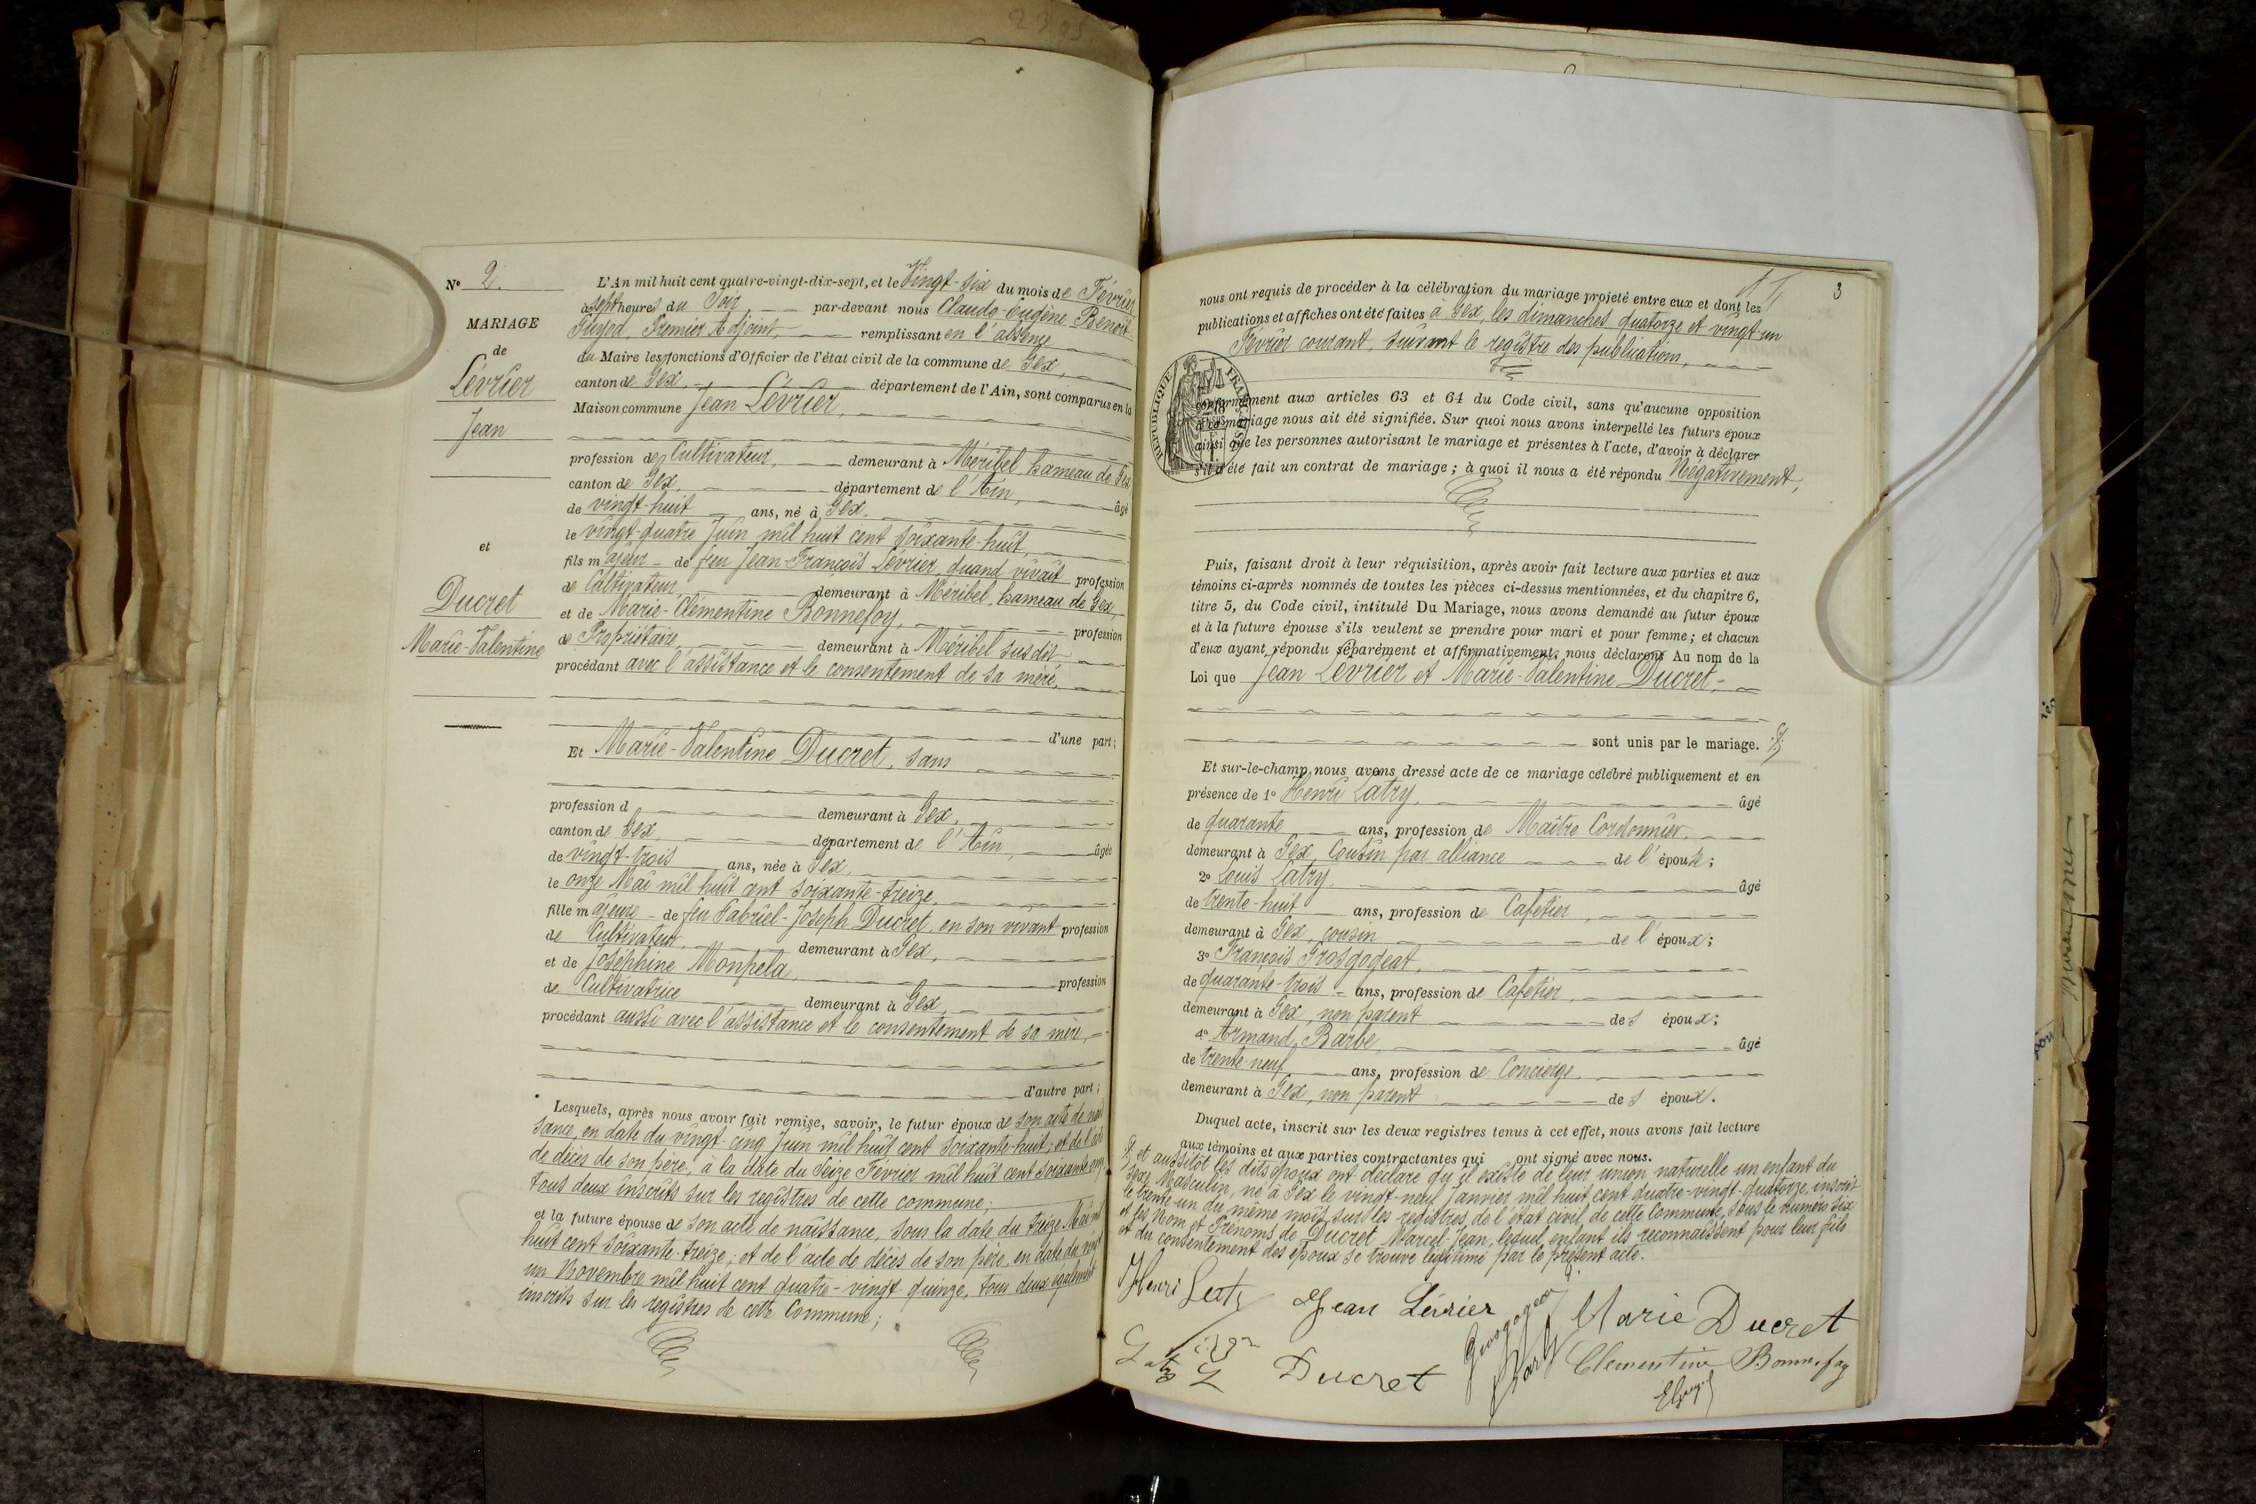 2395
N° 2.
MARIAGE
de
Lévrier
Jean
et
Ducret
Marie-Valentine
L'An mil huit cent quatre-vingt-dix-sept, et le Vingt-six du mois de Février
à sept heures du Soir par-devant nous Claude-Eugène Benoit
Premier Adjoint, remplissant en l'absence
du Maire les fonctions d'Officier de l'état civil de la commune de Gex,
canton de Gex, département de l'Ain, sont comparus en la
Maison commune Jean Lévrier,
profession de Cultivateur, demeurant à Méribel hameau de Gex
canton de Gex, département de l'Ain, âgé
de vingt-huit ans, né à Gex
le vingt-quatre Juin mil huit cent soixante-huit,
fils majeur de feu Jean-François Lévrier, quand vivait profession
de Cultivateur, demeurant à Méribel, hameau de Gex,
et de Marie-Clémentine Bonnefoy, profession
de Propriétaire, demeurant à Méribel susdit
procédant avec l'assistance et le consentement de sa mère,
d'une part;
Et Marie-Valentine Ducret, sans
profession d demeurant à Gex,
canton de Gex, département de l'Ain, âgée
de vingt-trois ans, née à Gex,
le onze Mai mil huit cent soixante-treize,
fille majeure de feu Gabriel-Joseph Ducret, en son vivant profession
de Cultivateur, demeurant à Gex,
et de Joséphine Monpela, profession
de Cultivatrice demeurant à Gex,
procédant aussi avec l'assistance et le consentement de sa mère,
d'autre part;
Lesquels, après nous avoir fait remise, savoir, le futur époux de son acte de nais
sance, en date du vingt-cinq Juin mil huit cent soixante-huit; et de l'acte
de décès de son père, à la date du Seize Février mil huit cent soixante
tous deux inscrits sur les registres de cette commune;
et la future épouse de son acte de naissance, sous la date du treize Mai mil
huit cent soixante-treize; et de l'acte de décès de son père, en date du vingt
un Novembre mil huit cent quatre-vingt-quinze, tous deux également
inscrits sur les registres de cette Commune;
3
nous ont requis de procéder à la célébration du mariage projeté entre eux et dont les
publications et affiches ont été faites à Gex, les dimanches quatorze et vingt-un
Février courant, suivant le registre des publications,
RÉPUBLIQUE FRANÇAISE
conformément aux articles 63 et 64 du Code civil, sans qu'aucune opposition
à ce mariage nous ait été signifiée. Sur quoi nous avons interpellé les futurs époux
ainsi que les personnes autorisant le mariage et présentes à l'acte, d'avoir à déclarer
s'il a été fait un contrat de mariage; à quoi il nous a été répondu Négativement;
Puis, faisant droit à leur réquisition, après avoir fait lecture aux parties et aux
témoins ci-après nommés de toutes les pièces ci-dessus mentionnées, et du chapitre 6,
titre 5, du Code civil, intitulé Du Mariage, nous avons demandé au futur époux
et à la future épouse s'ils veulent se prendre pour mari et pour femme; et chacun
d'eux ayant répondu séparément et affirmativement, nous déclarons Au nom de la
Loi que Jean Lévrier et Marie-Valentine Ducret,
sont unis par le mariage.
Et sur-le-champ nous avons dressé acte de ce mariage célébré publiquement et en
présence de 1° Henri Latry, âgé
de quarante ans, profession de Maître Cordonnier,
demeurant à Gex, Cousin par alliance de l'épouse;
2° Louis Latry, âgé
de trente-huit ans, profession de Cafetier,
demeurant à Gex, cousin de l'époux;
3° François Grosgogeat,
de quarante-trois ans, profession de Cafetier,
demeurant à Gex, non parent des époux;
4° Armand Barbe, âgé
de trente-neuf ans, profession de Concierge
demeurant à Gex, non parent des époux.
Duquel acte, inscrit sur les deux registres tenus à cet effet, nous avons fait lecture
aux témoins et aux parties contractantes qui ont signé avec nous.
et aussitôt les dits époux ont déclaré qu'il existe de leur union naturelle un enfant du
sexe Masculin, né à Gex le vingt-neuf Janvier mil huit cent quatre-vingt-quatorze, inscrit
le trente-un du même mois sur les registres de l'état civil de cette Commune, sous le numéro six
et les Nom et Prénoms de Ducret Marcel-Jean, lequel enfant ils reconnaissent pour leur fils
et du consentement des époux se trouve légitimé par le présent acte.
Henri Latry
Jean Lévrier
Grosgogeat
Marie Ducret
Latry L
Ducret
Clementine Bonnefoy